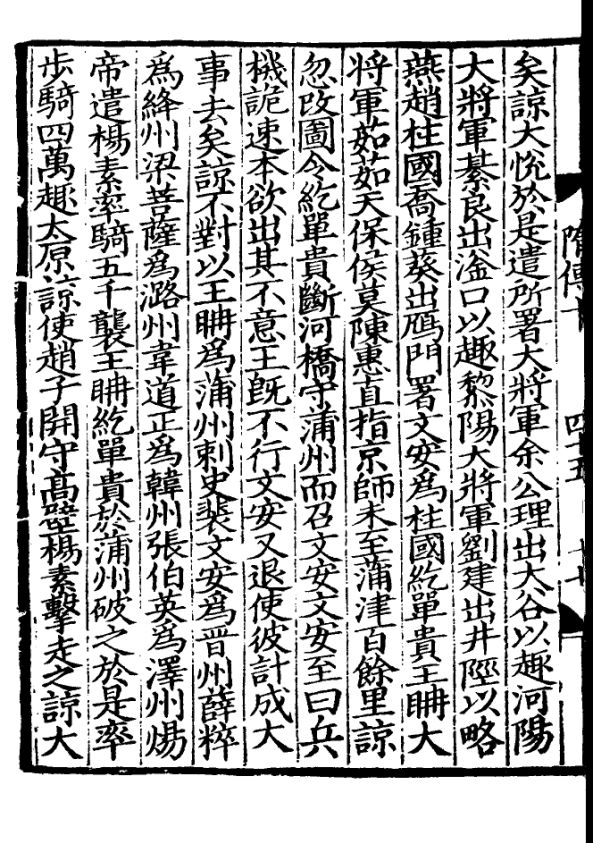 隋傳十
四十五
矣諒大恱於是遣所署大將軍余公理出大谷以趣河陽
大將軍綦良出滏口以趣黎陽大將軍劉建出井陘以略
燕趙柱國喬鍾葵出鴈門署文安爲柱國紇單貴王聃大
將軍茹茹天保侯莫陳惠直指京師未至蒲津百餘里諒
忽改圖令紇單貴斷河橋守蒲州而召文安文安至曰兵
機詭速本欲出其不意王旣不行文安又退使彼計成大
事去矣諒不對以王聃爲蒲州刺史裴文安爲晉州薛粹
爲絳州梁菩薩爲潞州韋道正爲韓州張伯英爲澤州煬
帝遣楊素率騎五千襲王聃紇單貴於蒲州破之於是率
步騎四萬趣太原諒使趙子開守高壁楊素擊走之諒大